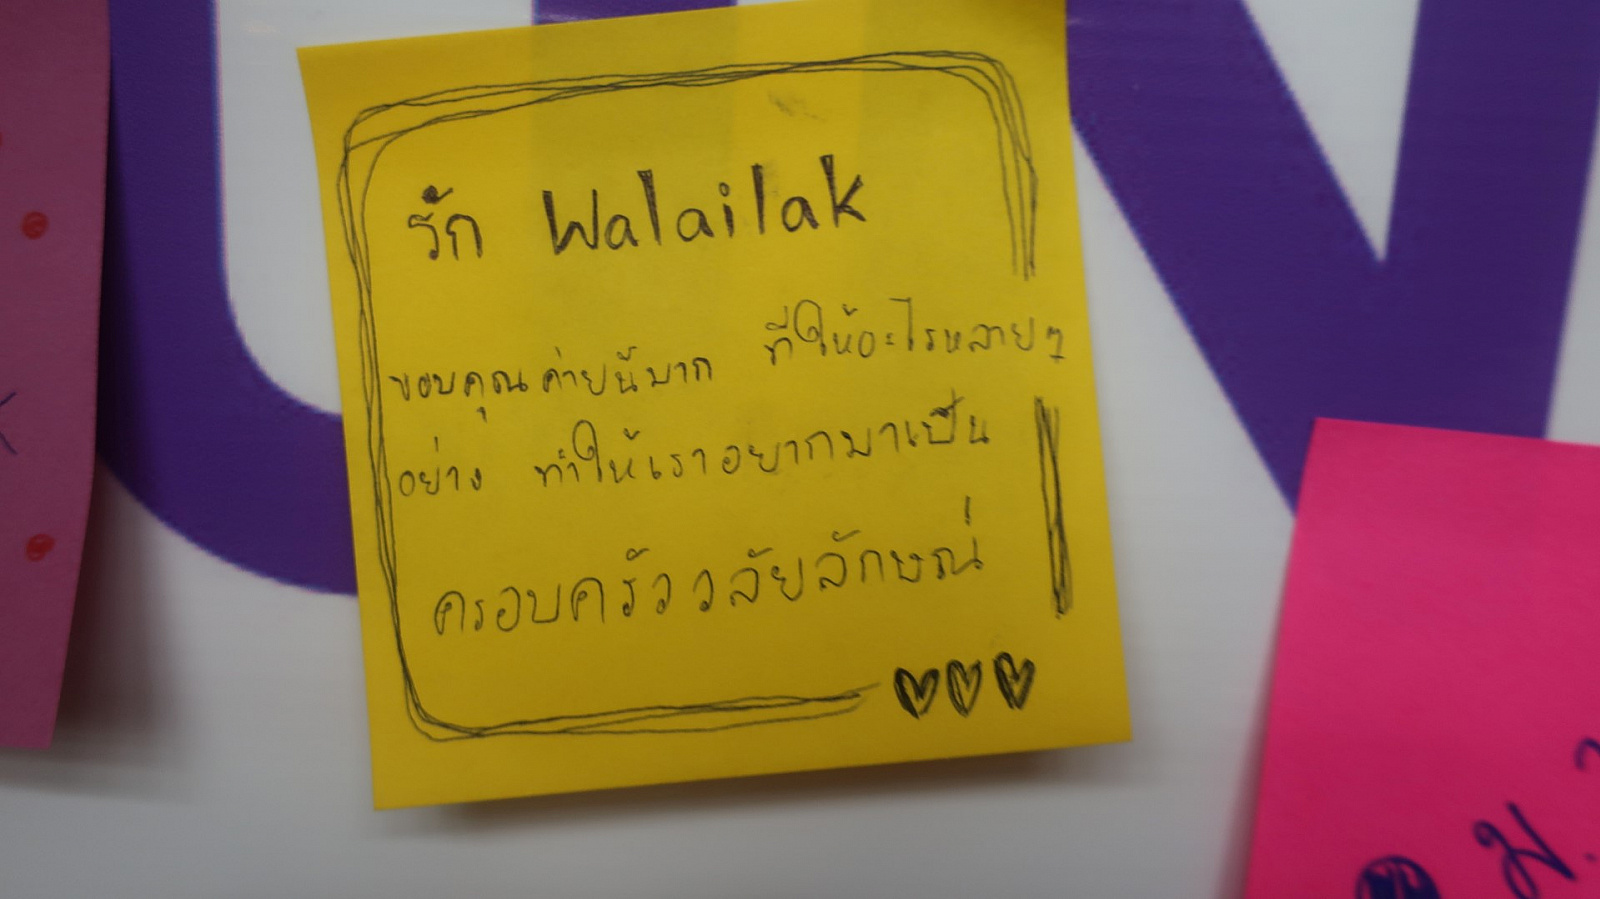 รัก Walailak
ขอบคุณค่ายนี้มาก ที่ให้อะไรหลายๆ
อย่าง ทำให้เราอยากมาเป็น
ครอบครัววลัยลักษณ์
ม.